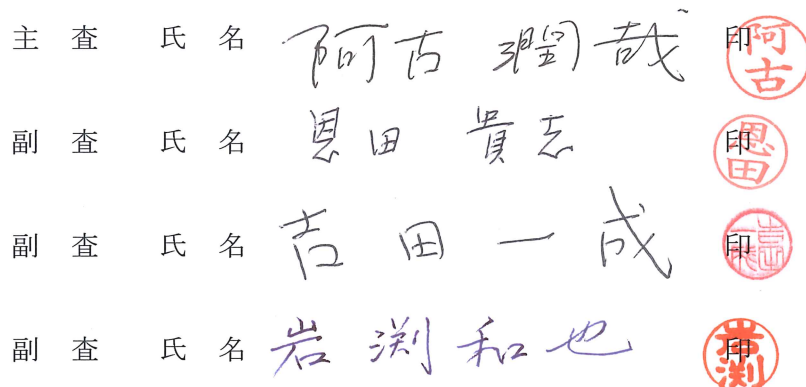 主査 氏名 阿古 潤哉 印 阿古
副査 氏名 恩田 貴志 印 恩田
副査 氏名 吉田 一成 印
副査 氏名 岩渕 和也 印 岩渕